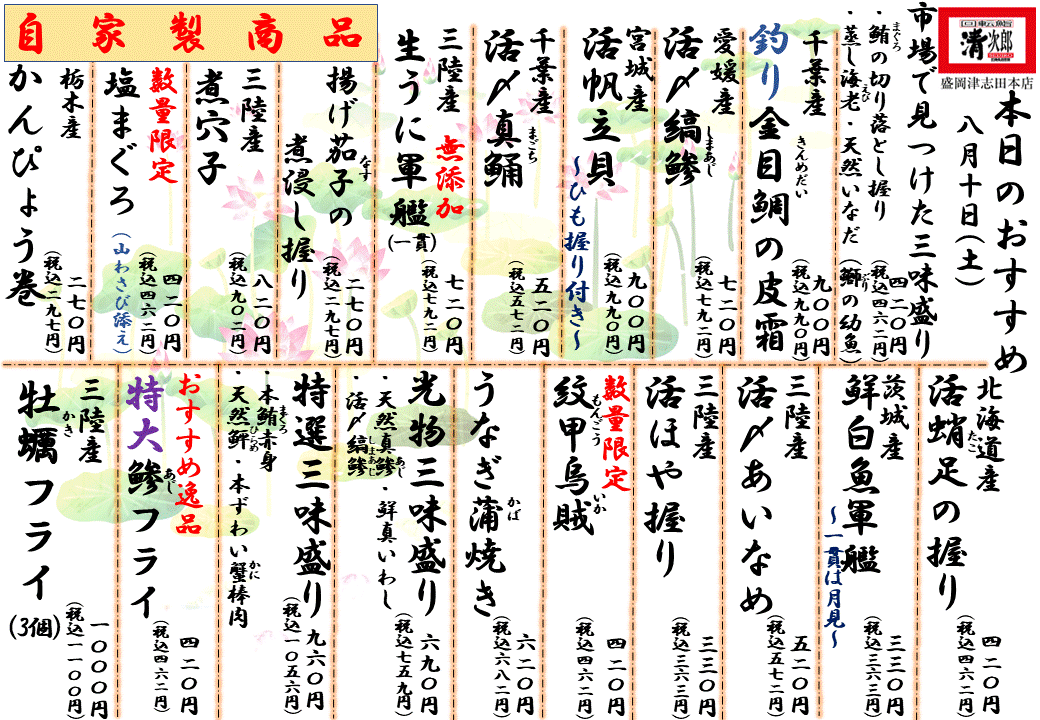 回転鮨
清次郎
盛岡津志田本店
本日のおすすめ
八月十日(土)
市場で見つけた三味盛り
・鮪の切り落とし握り
まぐろ
・蒸し海老・天然いなだ(鰤の幼魚)
えび
ぶり
四二〇円
(税込四六二円)
千葉産
釣り金目鯛の皮霜
きんめだい
九〇〇円
(税込九九〇円)
愛媛産
活〆縞鰺
しまあじ
七二〇円
(税込七九二円)
宮城産
活帆立貝
～ひも握り付き～
九〇〇円
(税込九九〇円)
千葉産
活〆真鯒
まごち
五二〇円
(税込五七二円)
三陸産
無添加
生うに軍艦(一貫)
七二〇円
(税込七九二円)
自家製商品
揚げ茄子の
なす
煮浸し握り
二七〇円
(税込二九七円)
三陸産
煮穴子
八二〇円
(税込九〇二円)
数量限定
塩まぐろ
(山わさび添え)
四二〇円
(税込四六二円)
栃木産
かんぴょう巻
二七〇円
(税込二九七円)
北海道産
活蛸足の握り
たこ
四二〇円
(税込四六二円)
茨城産
鮮白魚軍艦
～一貫は月見～
三三〇円
(税込三六三円)
三陸産
活〆あいなめ
五二〇円
(税込五七二円)
三陸産
活ほや握り
三三〇円
(税込三六三円)
数量限定
紋甲烏賊
もんごう
いか
四二〇円
(税込四六二円)
うなぎ蒲焼き
かば
六二〇円
(税込六八二円)
光物三味盛り
・天然真鰺・鮮真いわし
あじ
・活〆縞鰺
しまあじ
六九〇円
(税込七五九円)
特選三味盛り
・本鮪赤身
まぐろ
・天然鮃・本ずわい蟹棒肉
ひらめ
かに
九六〇円
(税込一〇五六円)
おすすめ逸品
特大鰺フライ
あじ
四二〇円
(税込四六二円)
三陸産
牡蠣フライ(3個)
かき
一〇〇〇円
(税込一一〇〇円)